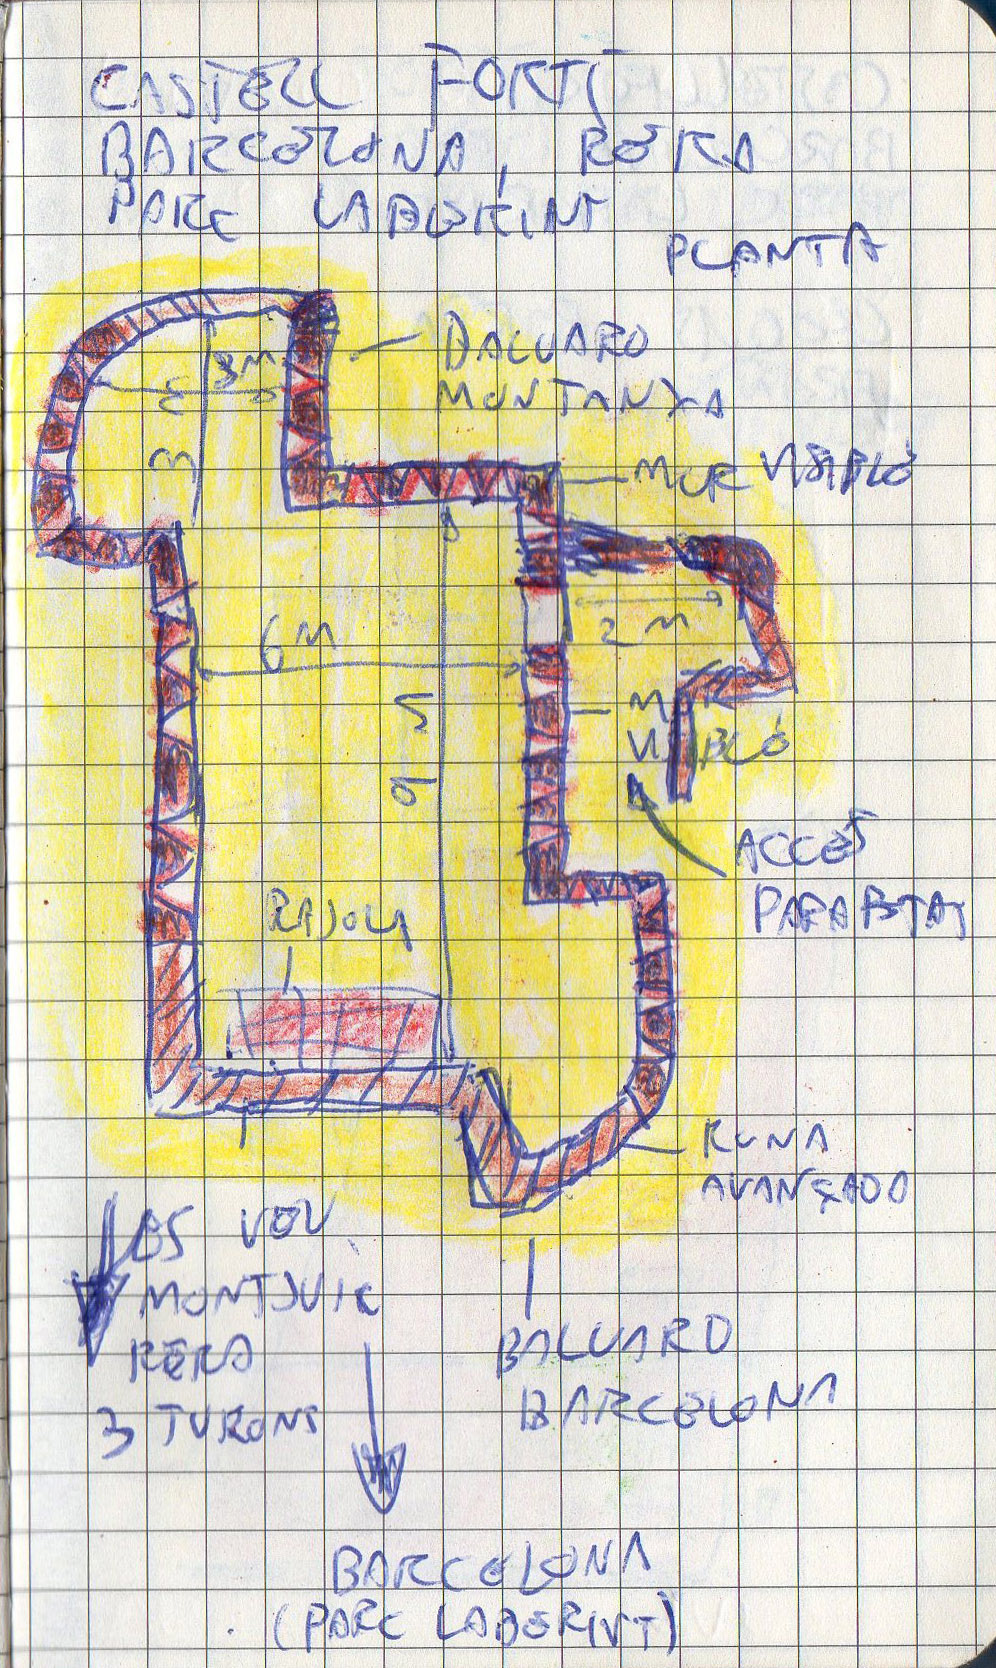 CASTELL FORTÍ
BARCELONA, RERA
PARC LABERINT
PLANTA
BALUARD
MONTANYA
3M
3 M
MUR VISIBLE
2 M
6 M
9 M
M
VISIBLE
ACCÉS
PARAPETAT
RAJOLA
RUNA
AVANÇADA
ES VEU
MONTJUÏC
RERA
3 TURONS
BALUARD
BARCELONA
BARCELONA
(PARC LABERINT)